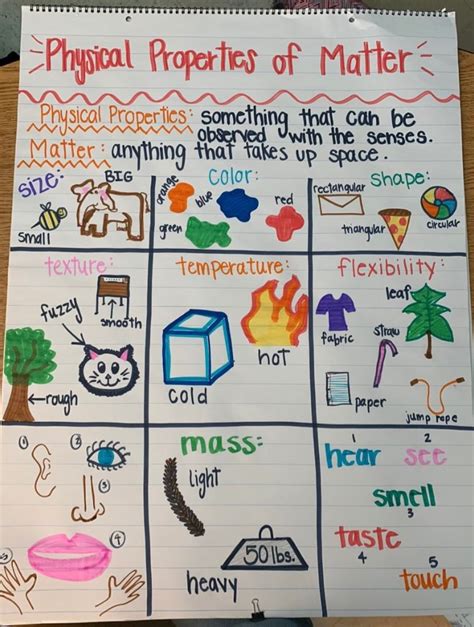 Physical Properties of Matter
Physical Properties: something that can be
observed with the senses.
Matter: anything that takes up space.
size:
BIG
small
color:
orange
blue
red
green
shape:
rectangular
triangular
circular
texture:
fuzzy
smooth
rough
temperature:
hot
cold
flexibility:
leaf
fabric
straw
paper
jump rope
1
2
3
4
5
mass:
light
50 lbs.
heavy
1 2
hear see
smell
3
taste
4
5
touch